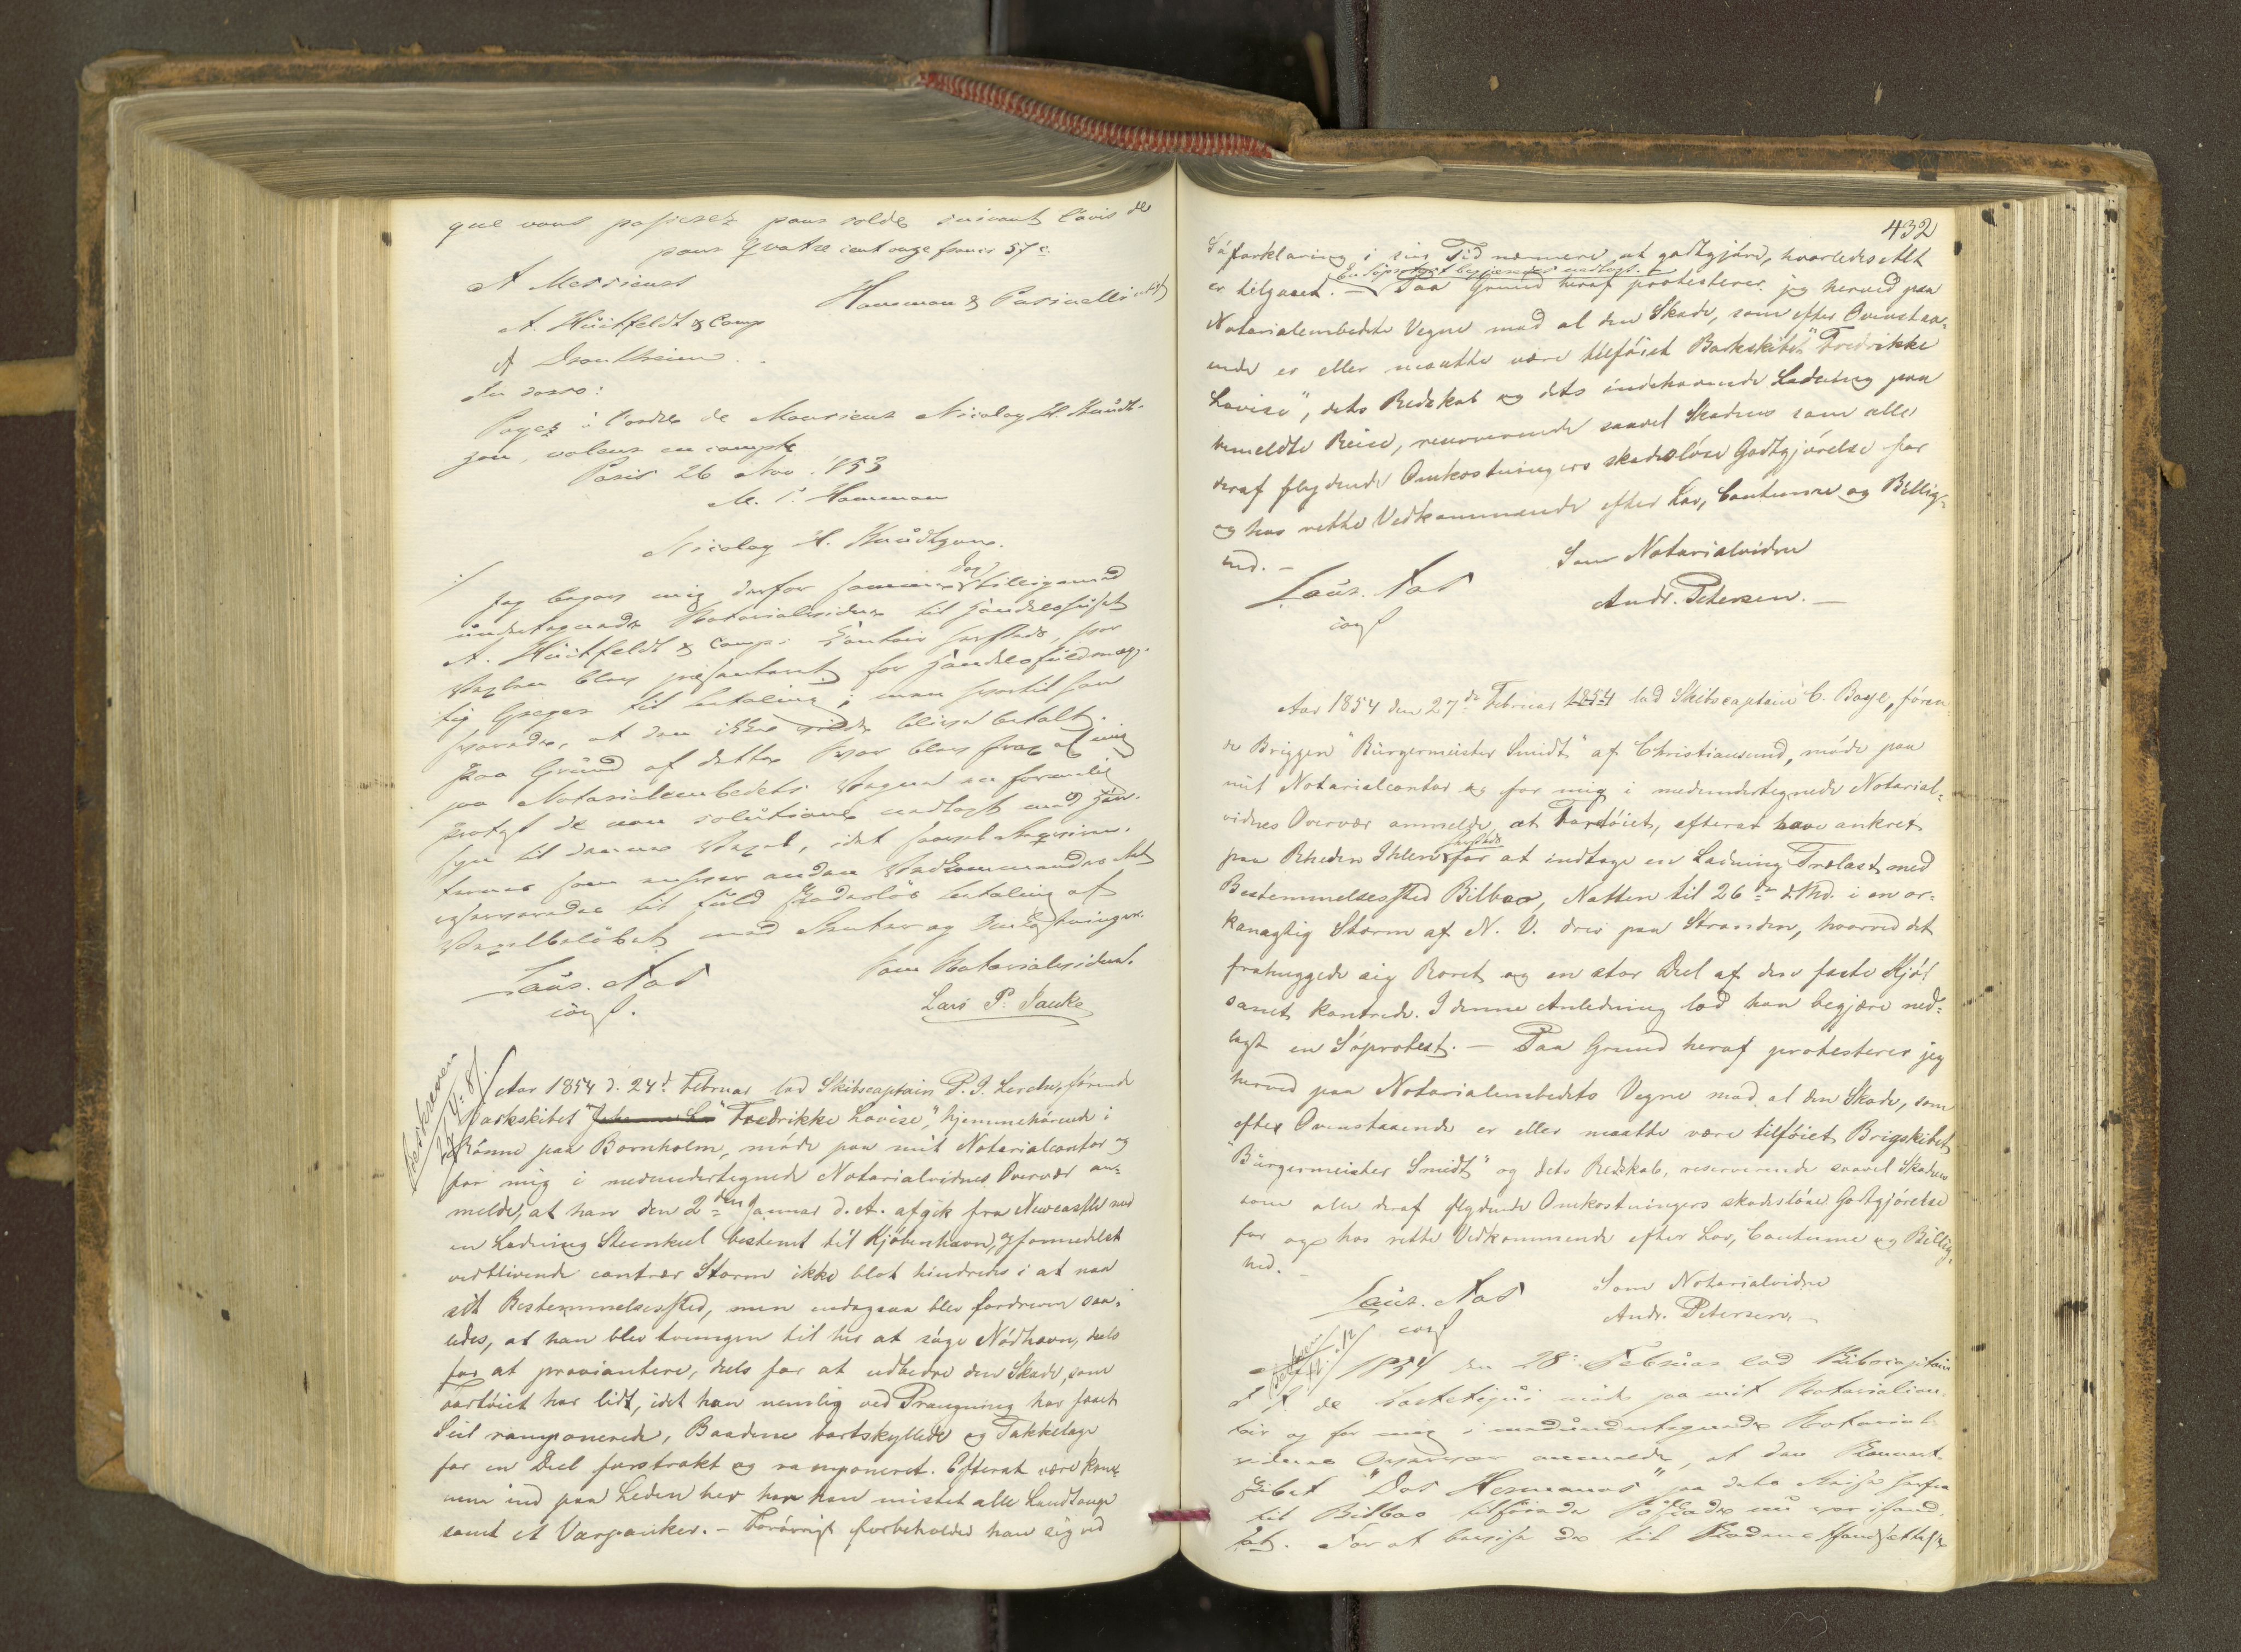 que vous passerez pour solde suivant l'avis de
pour Quatre cent onze francs 57 c.
A Messieurs
Hamman &
A. Hüitfeldt & Comp
A Drontheim.
Payez à l'ordre de Monsieur Nicolay H. Knudt-
zon, valeur en compte
Paris 26 Nov. 1853
Hamman
Nicolay H. Knüdtzon.
Jeg begav mig derfor samme Dag tilligemed
undertegnede Notarialvidne til Handelshuset
A. Hüitfeldt & Comp. Contoir hersteds, hvor
Vexlen blev præsenteret for Handelsfuldmæg-
tig til betaling; men hvortil han
svarede, at den ikke vilde blive betalt.
Paa Grund af dette Svar blev strax af mig
paa Notarialembedets Vegne en formelig
Protest de non solutione nedlagt med Hen-
syn til denne Vexel, idet saavel
som enhver anden Vedkommendes Ret
reserveredes til fuld skadeslös betaling af
Vexelbelöbet med Renter og Omkostninger.
Laur. Nos
const.
Som Notarialvidne.
Lars P. Sauke
Beskreven
Aar 1854 d. 24d. Februar lod Skibscaptain P. J. Lerche, förende
Barkskibet "Fredrikke Lovise", hjemmehörende i
Rönne paa Bornholm, möde paa mit Notarialcontor og
for mig i medundertegnede Notarialvidnes Overvær an-
melde, at han den 2den Januar d. A. afgik fra Newcastle med
en Ladning Steenkul bestemt til Kjöbenhavn, og formedelst
vedblivende contrær Storm ikke blot hindredes i at naa
sit Bestemmelsessted, men endogsaa blev fordreven saa-
ledes, at han blev tvungen til her at söge Nödhavn, deels
for at proviantere, deels for at udbedre den Skade, som
Fartöiet har lidt, idet han nemlig ved Prangning har faaet
Seil ramponerede, Baadene bortskyllede og Takkelage
for en Deel forstrakt og ramponeret. Efterat være kom-
men ind paa Leden her har han mistet alle Landtouge
samt et Varpanker. - Forövrigt forbeholder han sig ved
432
Söforklaring i sin Tid nærmere at godtgjöre, hvorledes Alt
En Söprotest begjæredes nedlagt.
er tilgaaet. - Paa Grund heraf protesterer jeg herved paa
Notarialembedets Vegne mod al den Skade, som efter Ovenstaa-
ende er eller maatte være tilföiet Barkskibet "Fredrikke
Lovise", dets Redskab og dets indehavende Ladning paa
bemeldte Reise, reserverende saavel Skadens som alle
deraf flydende Omkostningers skadeslöse Godtgjörelse for
og hos rette Vedkommende efter Lov, Coutume og Billig-
hed. -
Laur. Nos
const
Som Notarialvidne
Andr. Petersen. -
Aar 1854 den 27de Februar 1854 lod Skibscaptain C. Boye, fören-
de Briggen "Bürgermeister Smidt" af Christiansund, möde paa
mit Notarialcontor og for mig i medundertegnede Notarial-
vidnes Overvær anmelde, at Fartöiet, efterat have ankret
paa Rheden Ihlen hersteds for at indtage en Ladning Trælast med
Bestemmelsessted Bilbao, Natten til 26de d. Md. i en or-
kanagtig Storm af N. V. drev paa Stranden, hvorved det
frahuggede sig Roret og en stor Deel af den faste Kjöl
samt kantrede. I denne Anledning lod han begjære ned-
lagt en Söprotest. - Paa Grund heraf protesterer jeg
herved paa Notarialembedets Vegne mod al den Skade, som
efter Ovenstaaende er eller maatte være tilföiet Brigskibet
"Bürgermeister Smidt" og dets Redskab, reserverende saavel Skadens
som alle deraf flydende Omkostningers skadeslöse Godtgjörelse
for og hos rette Vedkommende efter Lov, Coutume og Billig-
hed. -
Laur. Nos
const
Som Notarialvidne
Andr. Petersen. -
1854 den 28. Februar lod Skibscapitain
de möde paa mit Notarialcon-
toir og for mig i medundertegnede Notarial-
vidnes Overvær anmelde, at den
Skibet "Dos Hermanos" paa dets Reise herfra
til Bilbao tilföiede Söskade nu var
For at bevise de til Skadens Istandsættelse